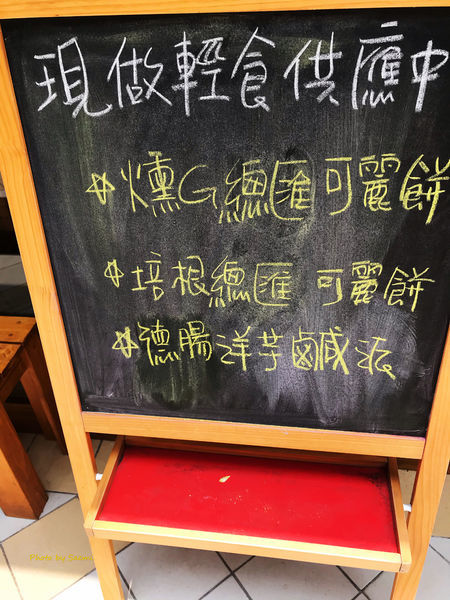 現做輕食供應中
☆燻G總匯可麗餅
☆培根總匯 可麗餅
☆德腸洋芋鹹派